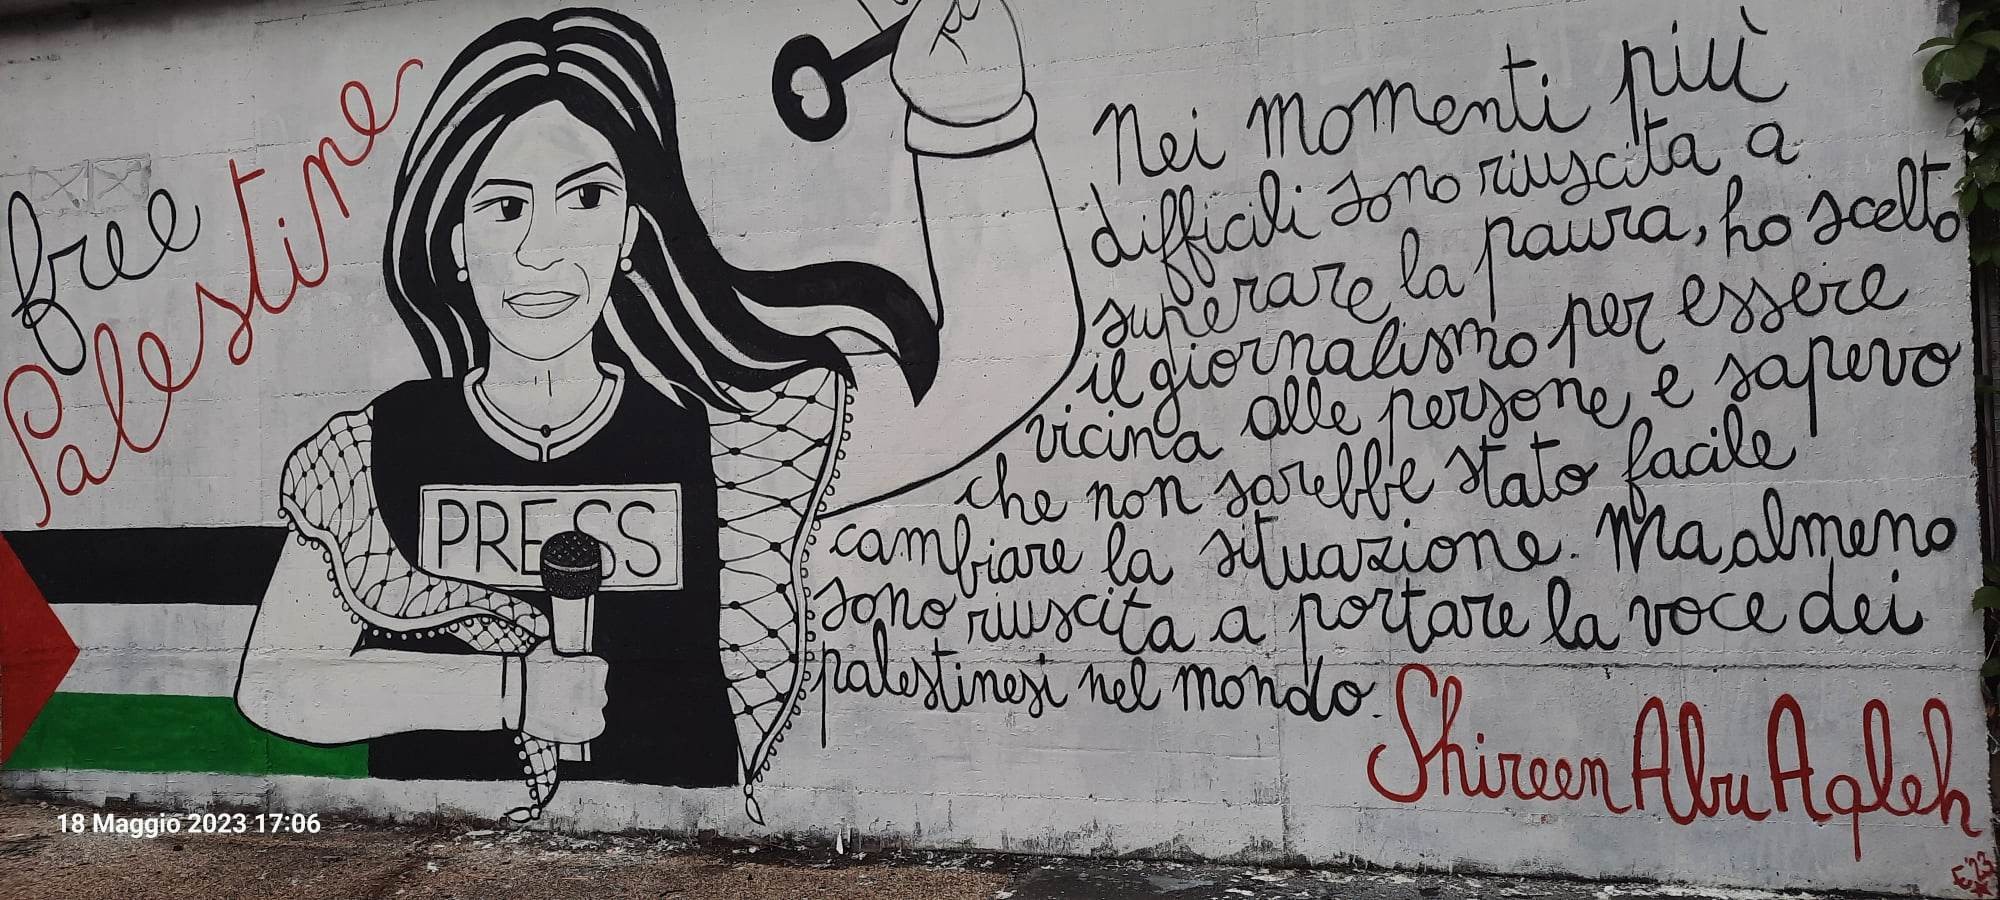 free
Palestine
PRESS
Nei momenti più
difficili sono riuscita a
superare la paura, ho scelto
il giornalismo per essere
vicina alle persone, e sapevo
che non sarebbe stato facile
cambiare la situazione. Ma almeno
sono riuscita a portare la voce dei
palestinesi nel mondo.
Shireen Abu Aqleh
E'23
18 Maggio 2023 17:06